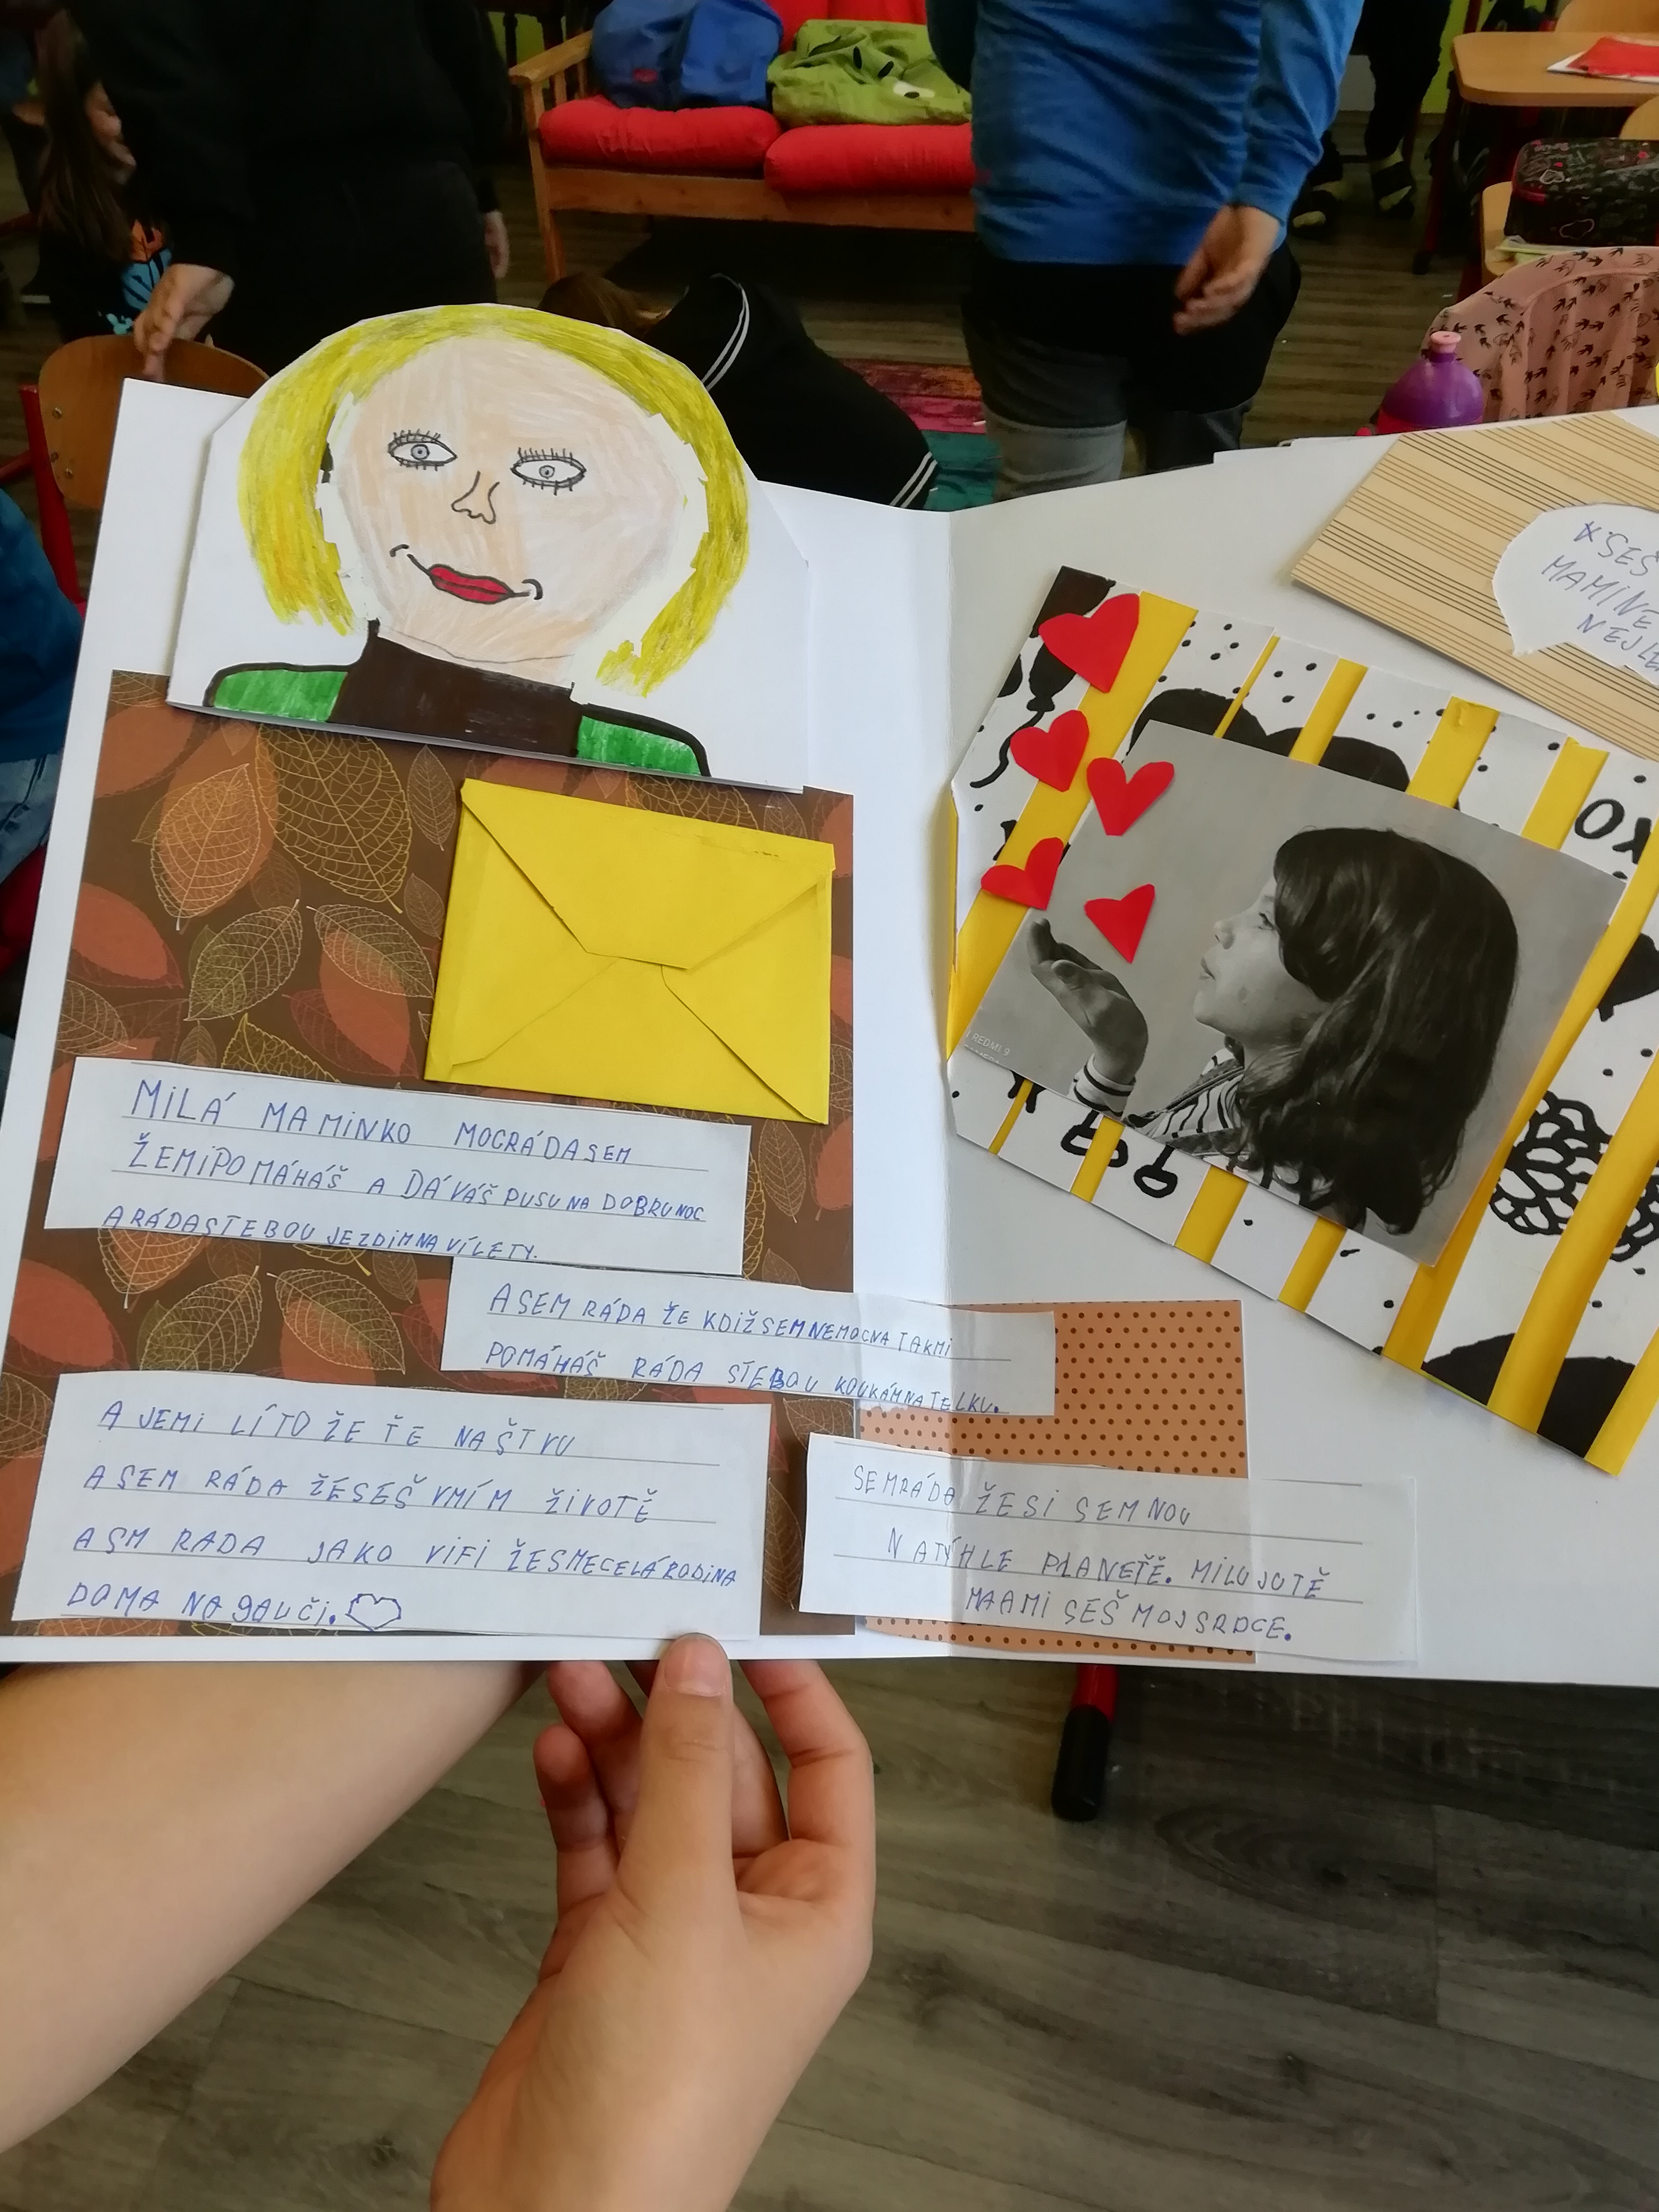 MILÁ MAMINKO MOCRÁDASEM
ŽEMIPOMÁHÁŠ A DÁVÁŠ PUSU NA DOBRUNOC
ARÁDASTEBOU JEZDIMNAVÍLETY.
ASEM RÁDA ŽE KDIŽSEMNEMOCNA TAKMI
POMÁHÁŠ RÁDA STEBOU KOUKÁMNATELKU.
A JEMI LÍTO ŽE ŤE NAŠTVU
ASEM RÁDA ŽÉSEŠ VMÍM ŽIVOTĚ
ASM RADA JAKO VIFI ŽESMECELÁRODINA
DOMA NA GAUČI.
SEMRÁDA ŽESI SEMNOU
NATÝHLE PLANEŤĚ. MILUJUTĚ
MAAMI SEŠ MOJSRDCE.
SEŠ
MAMINE
NEJLE
XO
REDMI 9